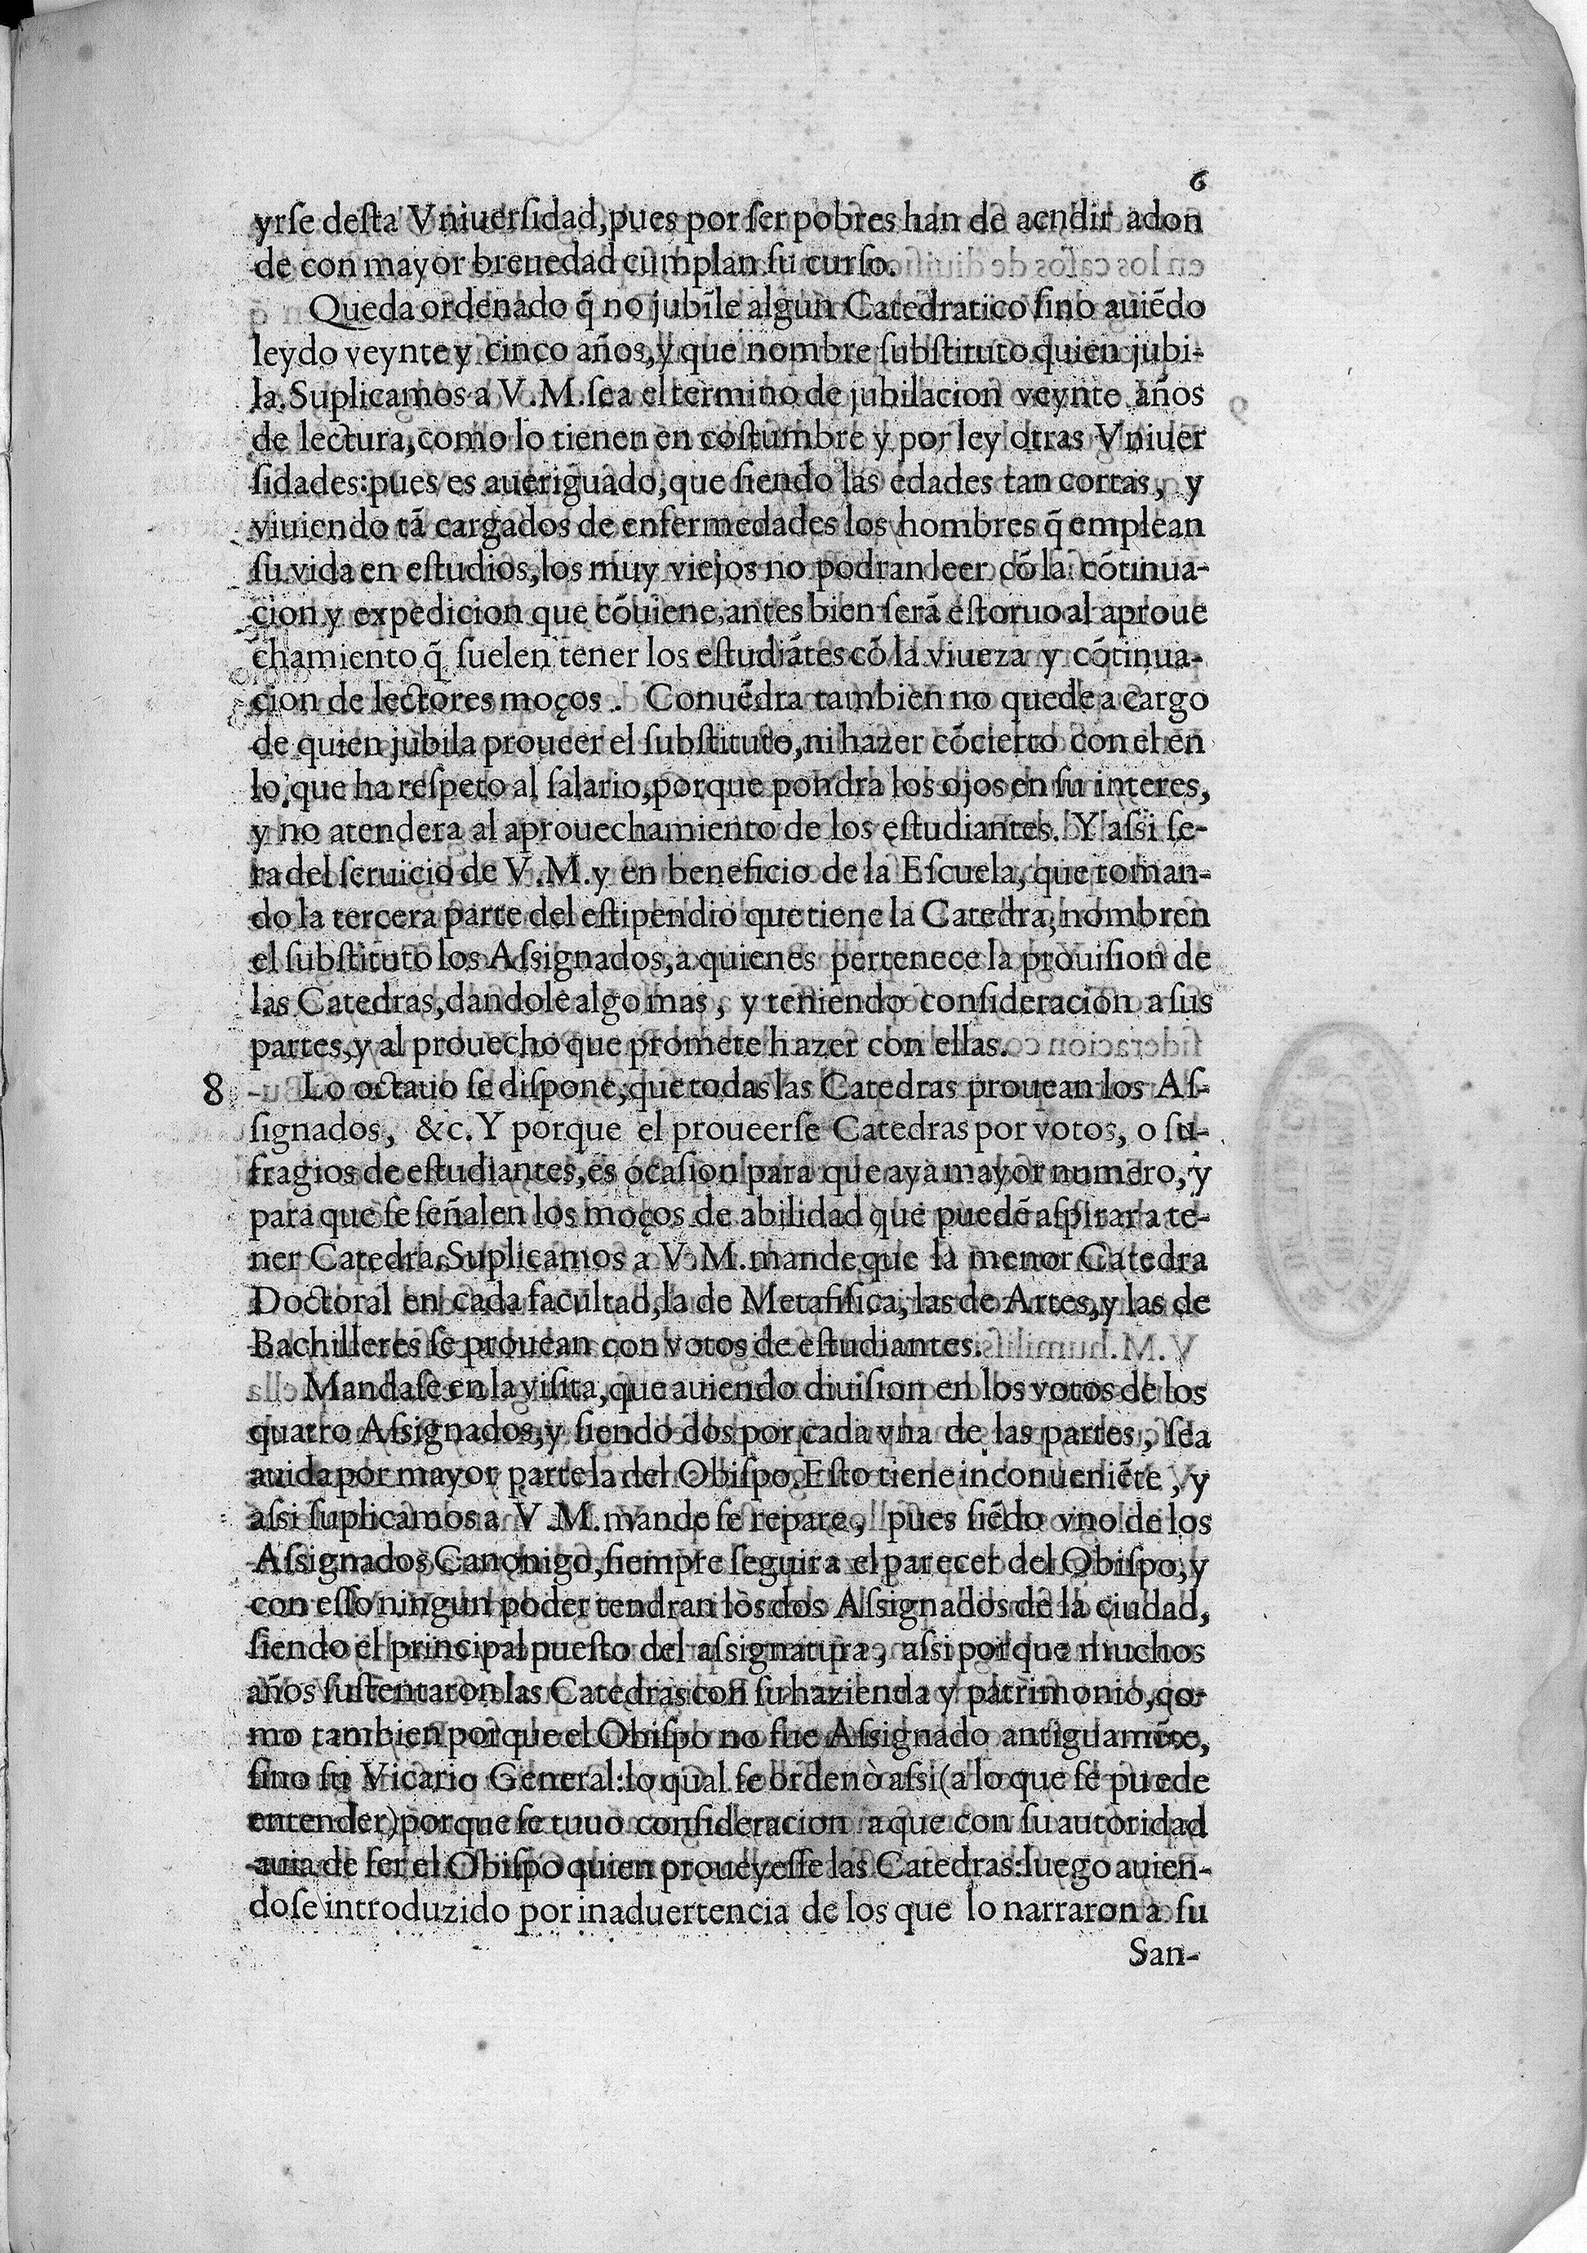 6
yrſe deſta Vniuerſidad,pues por ſer pobres han de acndir adon
de con mayor breuedad cumplan ſu curſo.
Queda ordenado q̃ no jubile algun Catedratico ſino auiẽdo
leydo veynte y cinco años,y que nombre ſubſtituto quien jubi-
la.Suplicamos a V.M.ſea el termino de jubilacion veynte años
de lectura,como lo tienen en coſtumbre y por ley otras Vniuer
ſidades:pues es aueriguado,que ſiendo las edades tan cortas, y
viuiendo tã cargados de enfermedades los hombres q̃ emplean
ſu vida en eſtudios,los muy viejos no podran leer cõ la cõtinua-
cion y expedicion que cõuiene,antes bien ſerã eſtoruo al aproue
chamiento q̃ ſuelen tener los eſtudiãtes cõ la viueza y cõtinua-
cion de lectores moços. Conuẽdra tambien no quede a cargo
de quien jubila proueer el ſubſtituto,ni hazer cõcierto con el en
lo que ha reſpeto al ſalario,porque pondra los ojos en ſu interes,
y no atendera al aprouechamiento de los eſtudiantes. Y aſsi ſe-
ra del ſeruicio de V.M.y en beneficio de la Eſcuela, que toman-
do la tercera parte del eſtipendio que tiene la Catedra, nombren
el ſubſtituto los Aſsignados,a quienes pertenece la prouiſion de
las Catedras,dandole algo mas, y teniendo conſideracion a ſus
partes,y al prouecho que promete hazer con ellas.
8 Lo octauo ſe diſpone,que todas las Catedras prouean los Aſ-
ſignados, &c. Y porque el proueerſe Catedras por votos, o ſu-
fragios de eſtudiantes,es ocaſion para que aya mayor numero, y
para que ſe ſeñalen los moços de abilidad que puedẽ aſpirar a te-
ner Catedra.Suplicamos a V.M.mande que la menor Catedra
Doctoral en cada facultad,la de Metafiſica, las de Artes,y las de
Bachilleres ſe prouean con votos de eſtudiantes.
Mandaſe en la viſita,que auiendo diuiſion en los votos de los
quatro Aſsignados,y ſiendo dos por cada vna de las partes, ſea
auida por mayor parte la del Obiſpo.Eſto tiene inconueniẽte, y
aſsi ſuplicamos a V.M. mande ſe repare, pues ſiẽdo vno de los
Aſsignados Canonigo,ſiempre ſeguira el parecer del Obiſpo,y
con eſſo ningun poder tendran los dos Aſsignados de la ciudad,
ſiendo el principal pueſto del aſsignatura, aſsi porque muchos
años ſuſtentaron las Catedras con ſu hazienda y patrimonio,co-
mo tambien porque el Obiſpo no fue Aſsignado antiguamẽte,
ſino ſu Vicario General:lo qual ſe ordenò aſsi(a lo que ſe puede
entender)porque ſe tuuo conſideracion a que con ſu autoridad
auia de ſer el Obiſpo quien proueyeſſe las Catedras:luego auien-
doſe introduzido por inaduertencia de los que lo narraron a ſu
San-